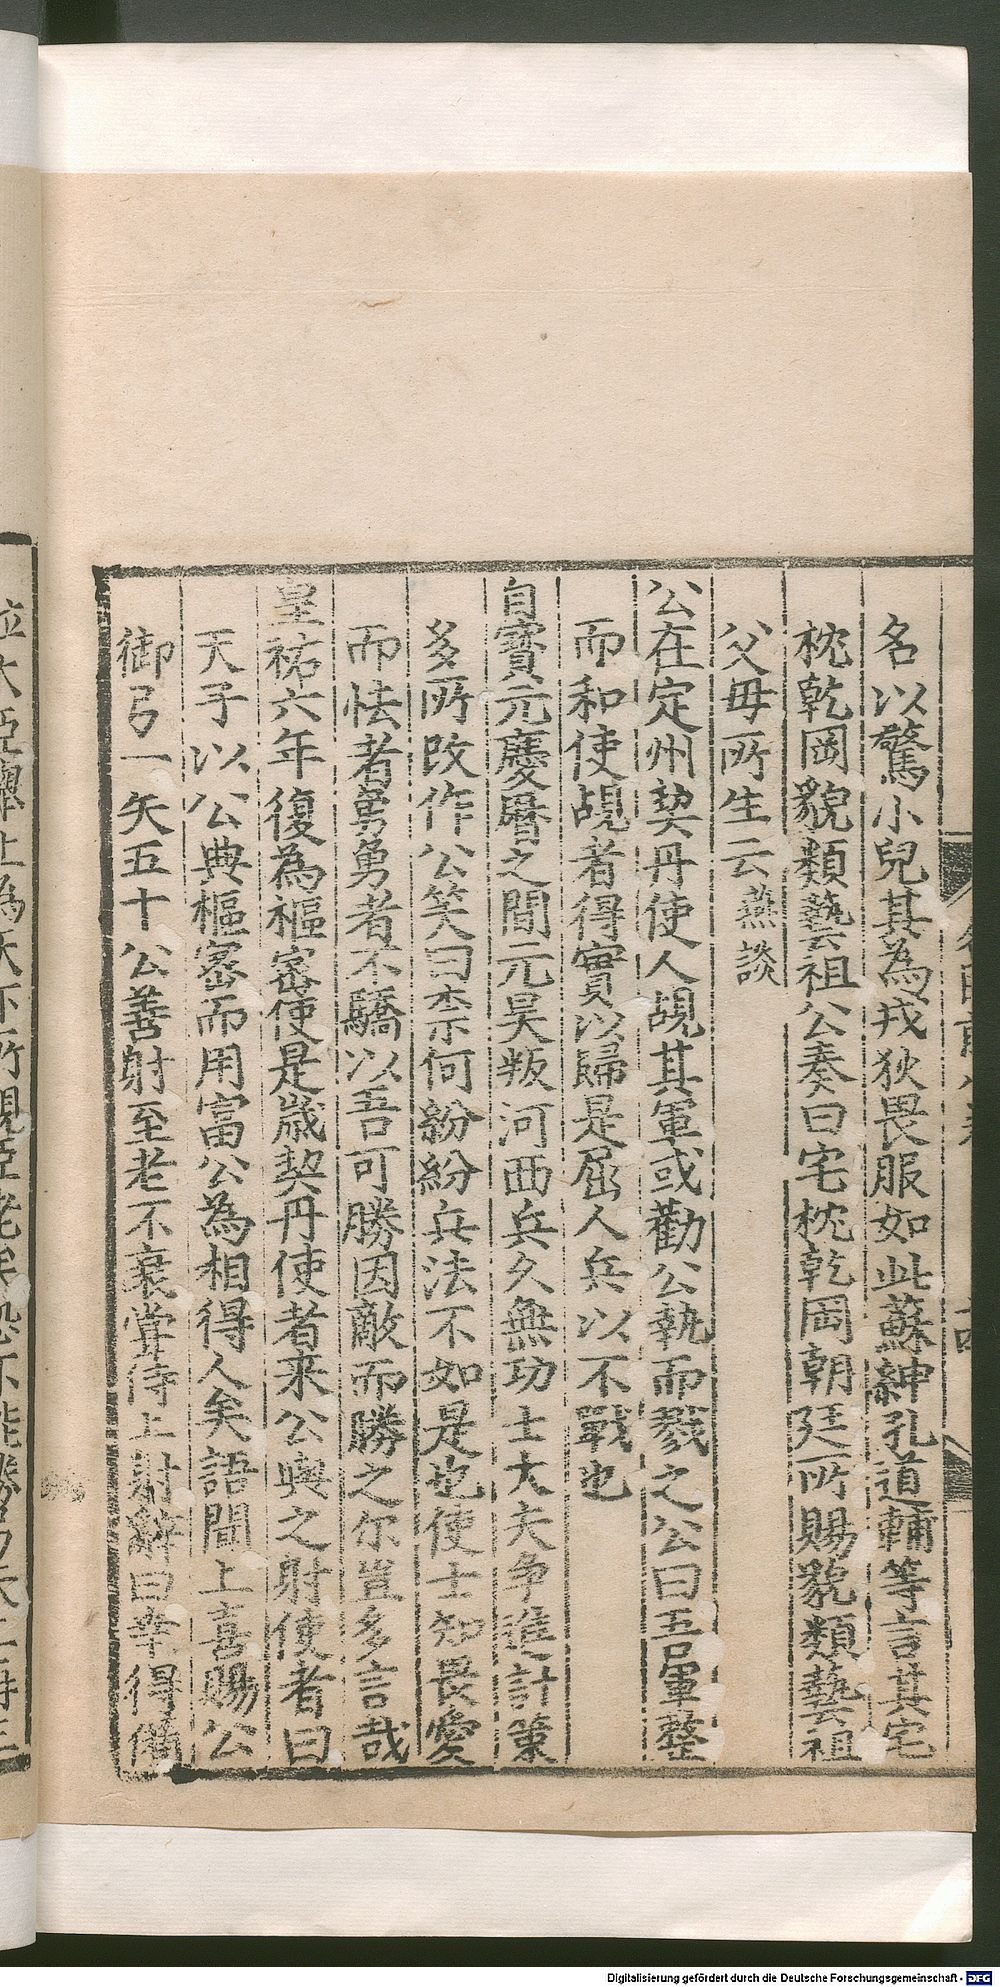 名以驚小兒其為戎狄畏服如此蘇紳孔道輔等言其宅
枕乾岡貌類藝祖公奏曰宅枕乾岡朝廷所賜貌類藝祖
父母所生云燕談
公在定州契丹使人覘其軍或勸公執而戮之公曰吾軍整
而和使覘者得實以歸是屈人兵以不戰也
自寶元慶曆之間元昊叛河西兵久無功士大夫争進計策
多所改作公笑曰柰何紛紛兵法不如是也使士知畏愛
而怯者勇勇者不驕以吾可勝因敵而勝之尔豈多言哉
皇祐六年復為樞密使是歳契丹使者来公與之射使者曰
天子以公典樞密而用富公為相得人矣語聞上喜賜公
御弓一矢五十公善射至老不衰甞侍上射辭曰幸得備
Digitalisierung gefördert durch die Deutsche Forschungsgemeinschaft - DFG